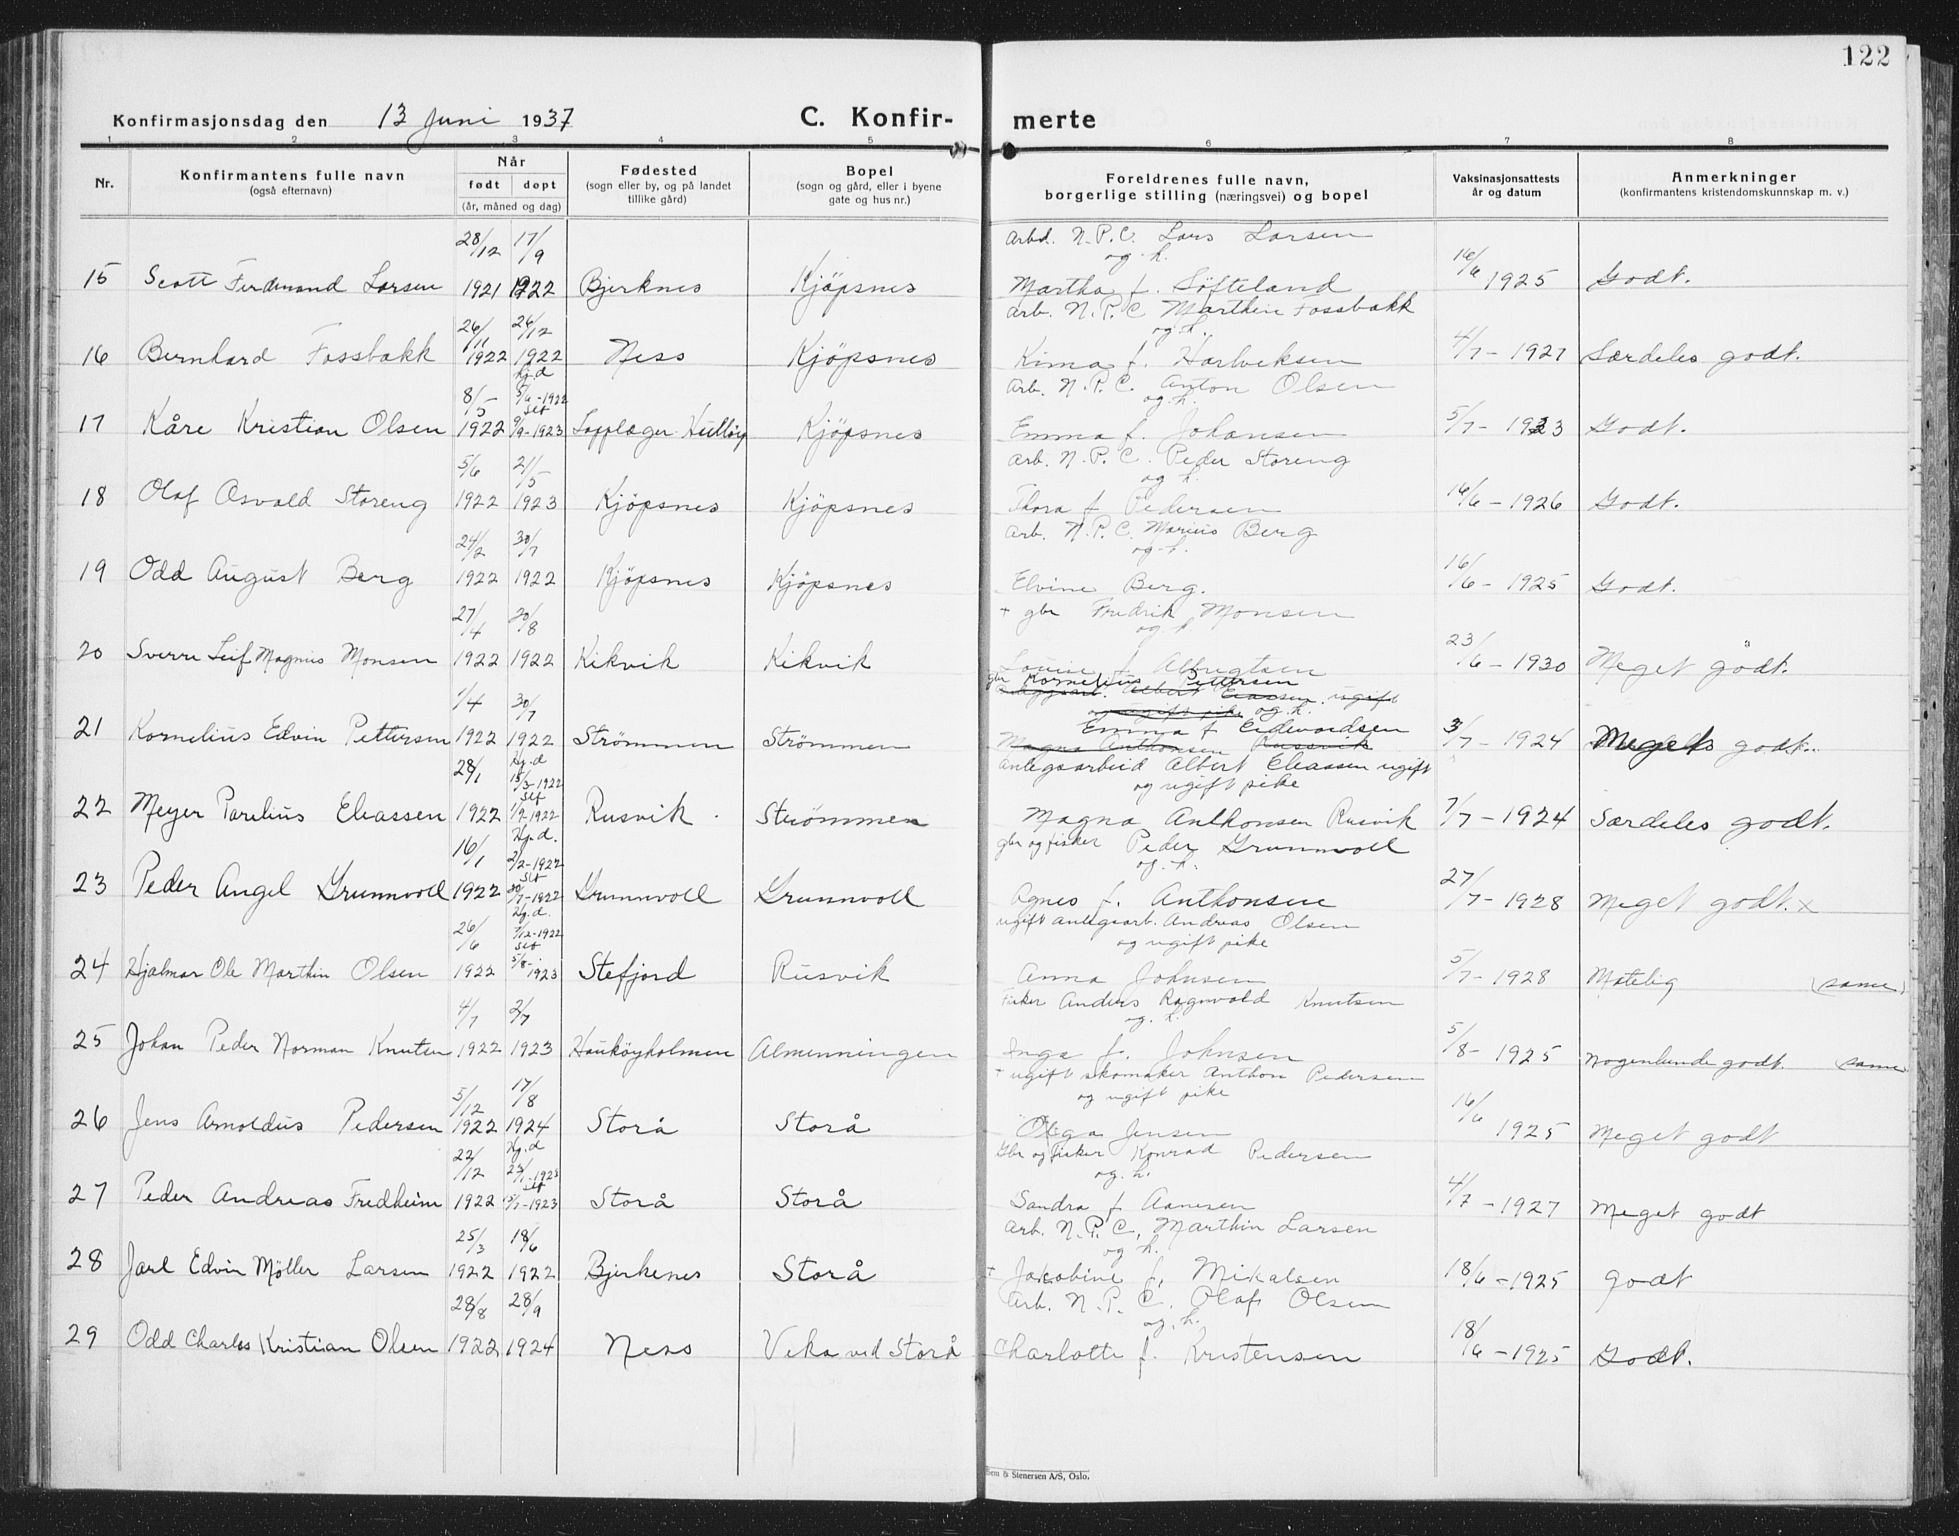 122
Konfirmasjonsdag den 13 Juni 1937
C. Konfir- merte
1 2 3 4 5 6 7 8
Nr.
Konfirmantens fulle navn
(også efternavn)
Når
født døpt
(år, måned og dag)
Fødested
(sogn eller by, og på landet
tillike gård)
Bopel
(sogn og gård, eller i byene
gate og hus nr.)
Foreldrenes fulle navn,
borgerlige stilling (næringsvei) og bopel
Vaksinasjonsattests
år og datum
Anmerkninger
(konfirmantens kristendomskunnskap m. v.)
28/12 17/9 Arbd. N.P.C. Lars Larsen
og h.
15 Scott Ferdinand Larsen 1921 1922 Bjerknes Kjöpsnes Martha f. Softeland 16/6 1925 Godt.
26/11 26/12 arb. N.P.C. Marthin Fossbakk
og h.
16 Bernhard Fossbakk 1922 1922 Ness Kjöpsnes Kima f. Hartviksen 4/7 - 1927 Særdeles godt.
8/5 hj.d 5/6-1922 st arb. N.P.C. Anton Olsen
og h.
17 Kåre Kristian Olsen 1922 9/9-1923 Lapplæger Kjöpsnes Emma f. Johansen 5/7 - 1923 Godt.
5/6 21/5 arb. N.P.C. Peder Storeng
og h.
18 Olaf Osvald Storeng 1922 1923 Kjöpsnes Kjöpsnes Thora f Pedersen 16/6 - 1926 Godt.
24/2 30/7 arb. N.P.C. Marius Berg
og h.
19 Odd August Berg 1922 1922 Kjöpsnes Kjöpsnes Elvine Berg. 16/6 - 1925 Godt.
27/4 20/8 + gbr Fredrik Monsen
og h.
20 Sverre Leif Magnus Monsen 1922 1922 Kikvik Kikvik Louise f Albrigtsen 23/6 - 1930 Meget godt.
1/4 30/7 gbr Kornelius Pettersen
Albert Eliassen ugift
og ugift pike og h.
Emma f Eidevardsen
21 Kornelius Edvin Pettersen 1922 1922 Strömmen Strömmen Magna Anthonsen Rusvik 3/7 - 1924 Meget godt.
28/1 hj.d 15/3-1922 st Anlegsarbeid Albert Eliassen ugift
og ugift pike
22 Meyer Parelius Eliassen 1922 1/9-1922 Rusvik Strömmen Magna Anthonsen Rusvik 7/7 - 1924 Særdeles godt.
16/1 Hj.d. 2/2-1922 st gbr og fisker Peder Grunnvoll
og h.
23 Peder Angel Grunnvoll 1922 30/7-1922 Grunnvoll Grunnvoll Agnes f. Anthonsen 27/7 - 1928 Meget godt. x
26/6 Hj.d. 7/12-1922 st ugift anlegsarb. Andreas Olsen
og ugift pike
24 Hjalmar Ole Marthin Olsen 1922 5/8-1923 Stefjord Rusvik Anna Johnsen 5/7 - 1928 Måtelig (same)
4/7 2/7 Fisker Anders Ragnvald Knutsen
og h.
25 Johan Peder Norman Knutsen 1922 1923 Hauköyholmen Almenningen Inga f. Johnsen 5/8 - 1925 Nogenlunde godt. (same)
5/12 17/8 + ugift skomaker Anthon Pedersen
og ugift pike
26 Jens Arnoldus Pedersen 1922 1924 Storå Storå Olga Jensen 16/6 1925 Meget godt
22/12 Hj.d st Gbr og fisker Konrad Pedersen
og h.
27 Peder Andreas Fredheim 1922 Storå Storå Sandra f Aanesen 4/7 - 1927 Meget godt
25/3 18/6 arb. N.P.C. Marthin Larsen
og h.
28 Jarl Edvin Möller Larsen 1922 1922 Bjerkenes Storå + Jakobine f. Mikalsen 18/6 - 1925 godt
28/8 28/9 arb. N.P.C. Olaf Olsen
og h.
29 Odd Charles Kristian Olsen 1922 1924 Ness Veka ved Storå Charlotte f. Kristensen 18/6 - 1925 Godt.
& Stenersen A/S, Oslo.